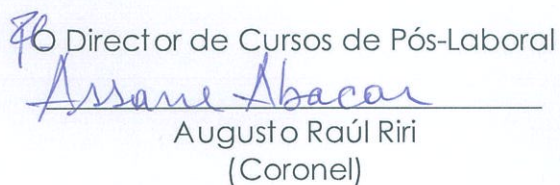 P/O Director de Cursos de Pós-Laboral
Assane Abacar
Augusto Raúl Riri
(Coronel)